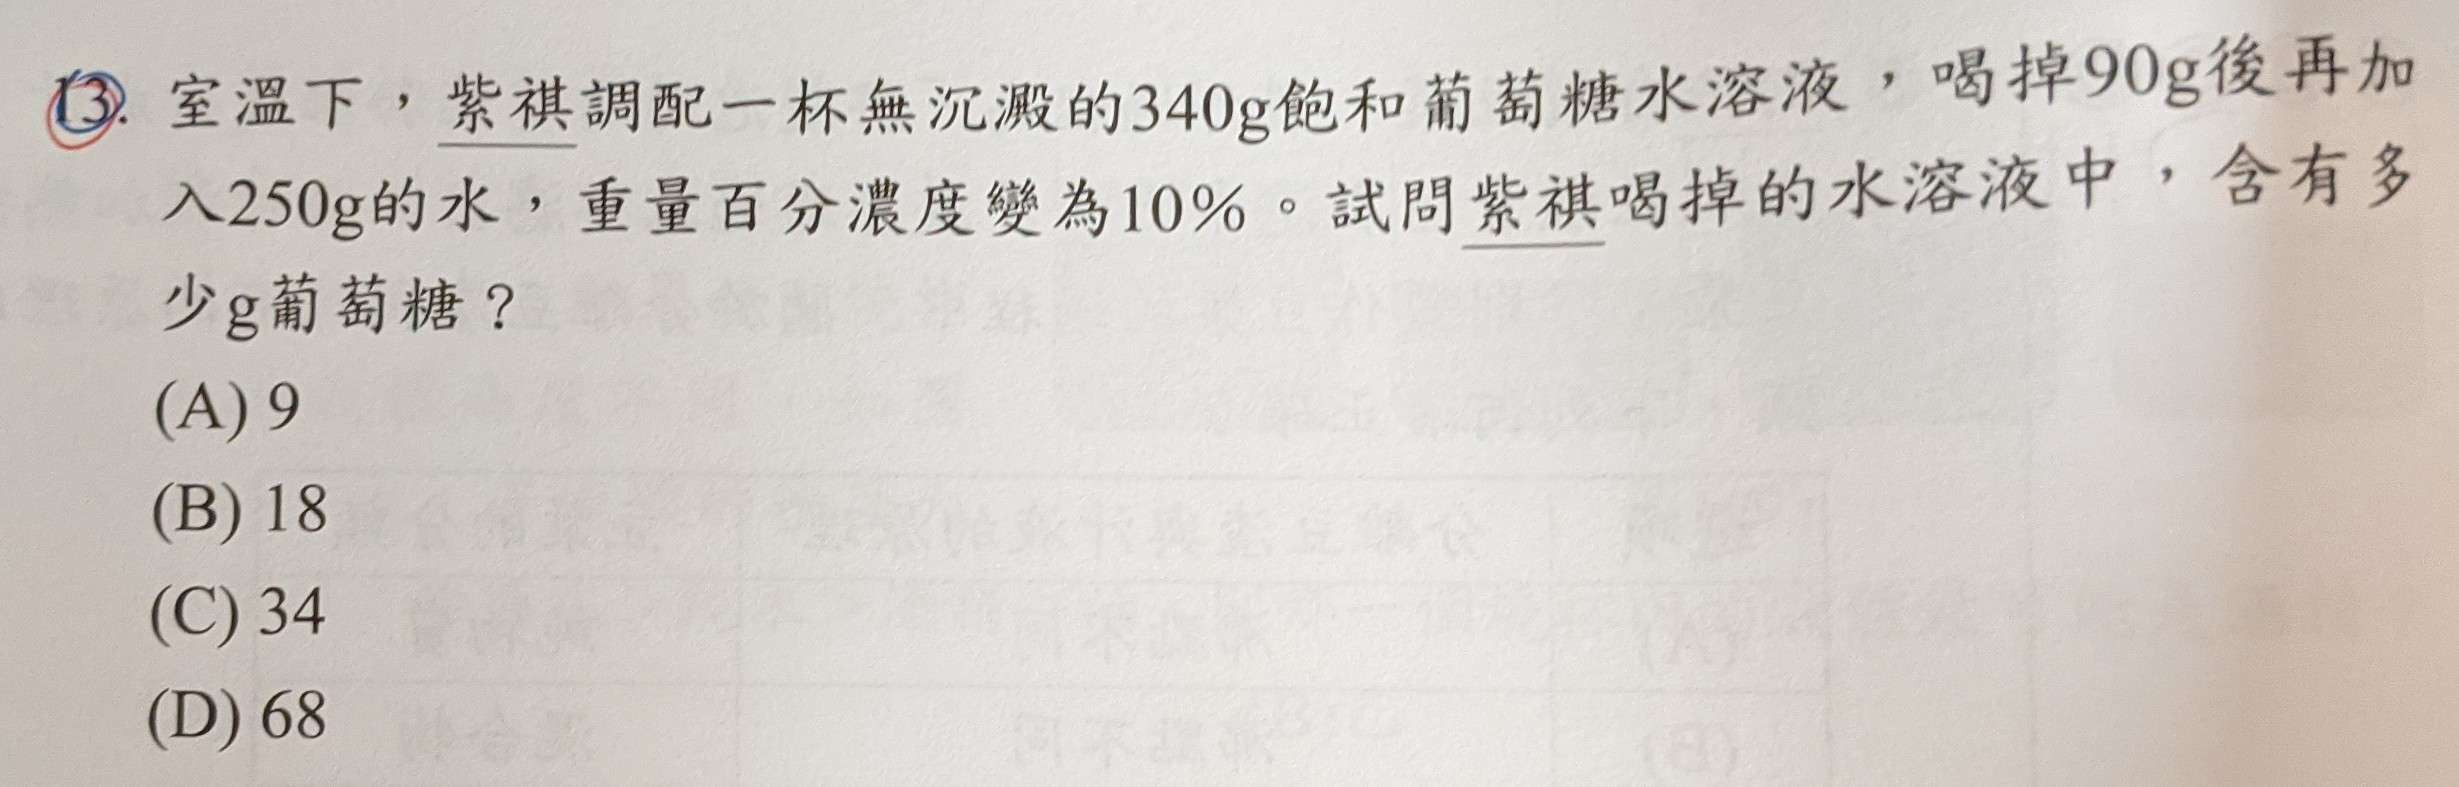 13. 室溫下，紫祺調配一杯無沉澱的340g飽和葡萄糖水溶液，喝掉90g後再加
入250g的水，重量百分濃度變為10%。試問紫祺喝掉的水溶液中，含有多
少g葡萄糖？
(A) 9
(B) 18
(C) 34
(D) 68